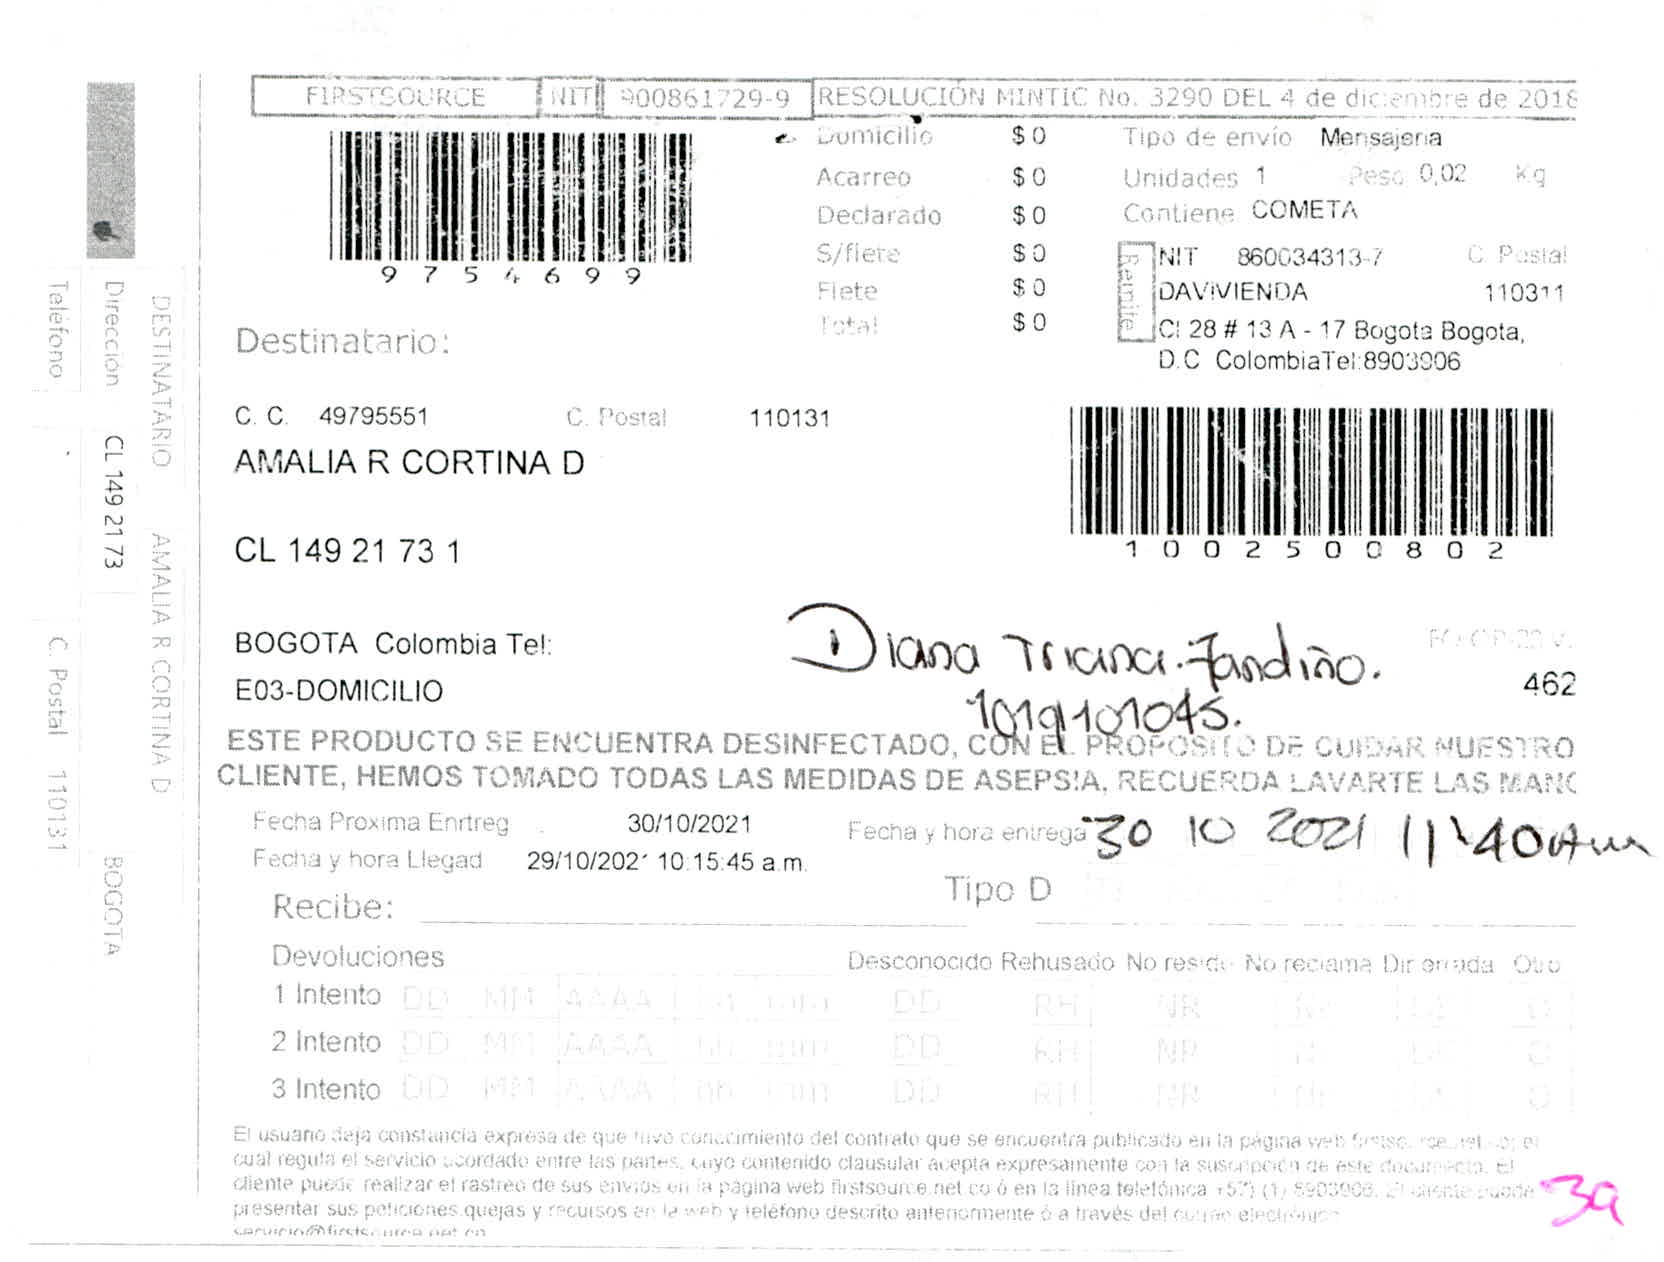 FIRSTSOURCE NIT 900861729-9 RESOLUCIÓN MINTIC No. 3290 DEL 4 de diciembre de 2018
9754699
Domicilio $ 0
Acarreo $ 0
Declarado $ 0
S/flete $ 0
Flete $ 0
Total $ 0
Tipo de envío Mensajeria
Unidades 1 Peso 0,02 Kg
Contiene COMETA
Remite
NIT 860034313-7 C. Postal
DAVIVIENDA 110311
Cl 28 # 13 A - 17 Bogota Bogota,
D.C Colombia Tel:8903906
Destinatario:
C. C. 49795551 C. Postal 110131
AMALIA R CORTINA D
1002500802
CL 149 21 73 1
BOGOTA Colombia Tel:
E03-DOMICILIO
Diana Triana Fandiño.
1019101045.
462
ESTE PRODUCTO SE ENCUENTRA DESINFECTADO, CON EL PROPOSITO DE CUIDAR NUESTRO
CLIENTE, HEMOS TOMADO TODAS LAS MEDIDAS DE ASEPSIA, RECUERDA LAVARTE LAS MANO
Fecha Proxima Enrtreg 30/10/2021
Fecha y hora entrega 30 10 2021 11:40 Am
Fecha y hora Llegad 29/10/2021 10:15:45 a.m.
Tipo D
Recibe:
Devoluciones Desconocido Rehusado No reside No reclama Dir errada Otro
1 Intento DD MM AAAA hh mm DD RH NR O
2 Intento DD MM AAAA hh mm DD RH NR O
3 Intento DD MM AAAA hh mm DD RH NR O
El usuario deja constancia expresa de que tuvo conocimiento del contrato que se encuentra publicado en la página web el
cual regula el servicio acordado entre las partes, cuyo contenido clausular acepta expresamente con la suscripción de este documento. El
cliente puede realizar el rastreo de sus envios en la página web firstsource.net.co ó en la línea telefónica +57) (1) 8903906. El cliente puede
presentar sus peticiones quejas y recursos en la web y teléfono descrito anteriormente ó a través del correo electrónico
servicio@firstsource.net.co
39
DESTINATARIO AMALIA R CORTINA D
Dirección CL 149 21 73 BOGOTA
Teléfono C. Postal 110131